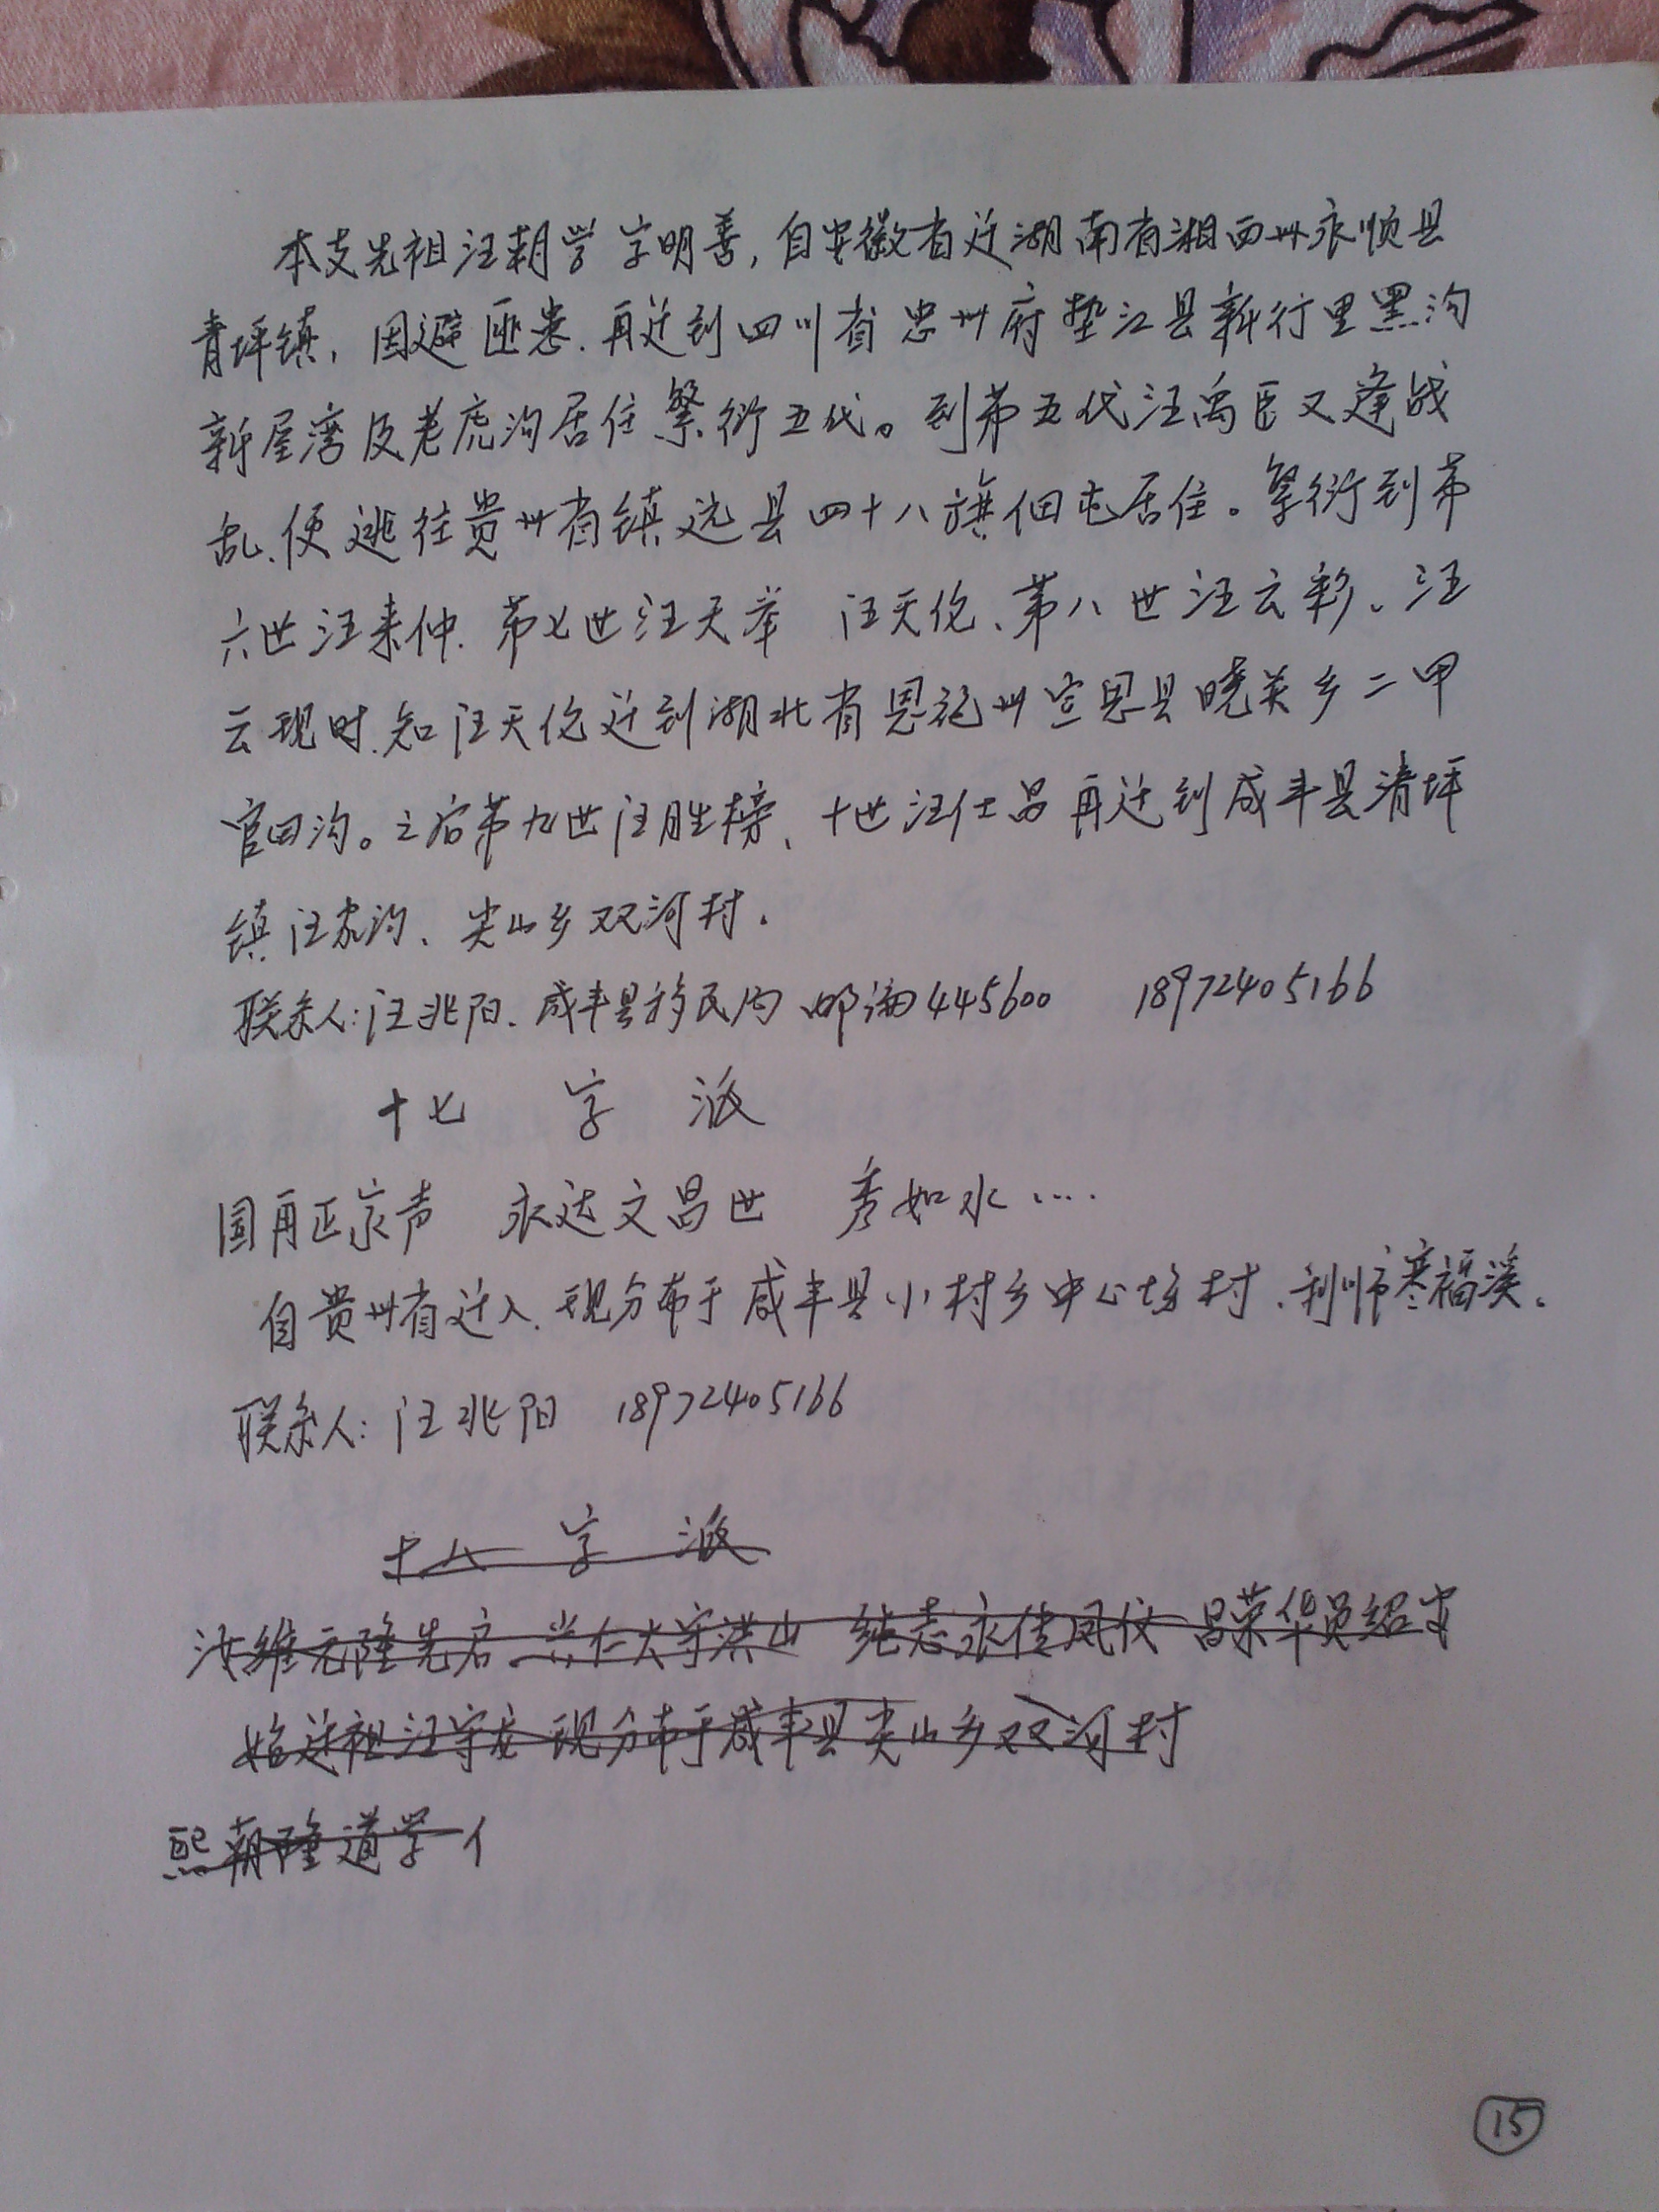 本支先祖汪朝学字明善,自安徽省迁湖南省湘西州永顺县
青坪镇,因避匪患.再迁到四川省忠州府垫江县新行里黑沟
新屋湾及老虎沟居住繁衍五代。到第五代汪禹臣又逢战
乱.便逃往贵州省镇远县四十八旗佃屯居住。繁衍到第
六世汪来仲.第七世汪天举 汪天伦、第八世汪云彩、汪
云现时.知汪天伦迁到湖北省恩施州宣恩县晓关乡二甲
官田沟。之后第九世汪胜榜、十世汪仕品再迁到咸丰县清坪
镇汪家沟、尖山乡双河村.
联系人:汪兆阳.咸丰县移民局 邮编445600 18972405166
十七 字 派
国再正宗声 永达文昌世 秀如水····
自贵州省迁入.现分布于咸丰县小村乡中心场村.利川市寒福溪.
联系人:汪兆阳 18972405166
十八 字 派
汝维元隆先启 兴仁大守洪山 纯志永传凤仪 昌荣华员绍安
始迁祖汪守龙 现分布于咸丰县尖山乡双河村
熙朝隆道学亻
15